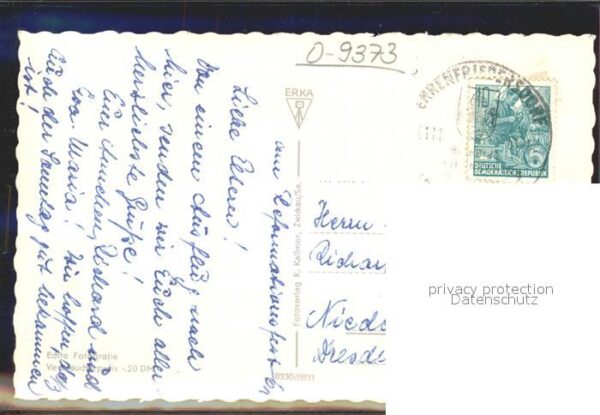 O-9373
am Reformationsfest
Liebe Eltern!
Von einem Ausflug nach
hier, senden wir Euch allen
herzlichste Grüße!
Eure Richard und
Eva-Maria! Wir hoffen, daß
Euch der Samstag gut bekommen
ist!
Echte Fotografie
Verbraucherpreis -.20 DM
ERKA
Fotoverlag R. Kallmer, Zwickau/Sa.
6330/6831
EHRENFRIEDERSDORF
10
DEUTSCHE
DEMOKRATISCHE REPUBLIK
Herrn
Richar
Niede
Dresde
privacy protection
Datenschutz